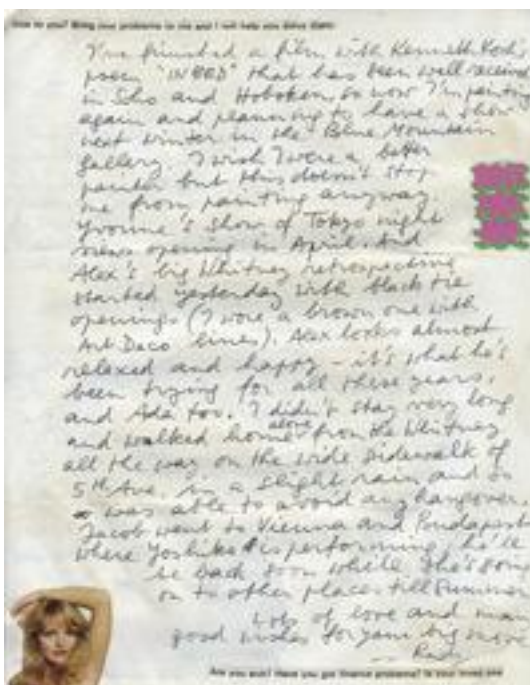 to you? Bring your problems to me and I will help you solve them
I've finished a film with Kenneth Koch's
poem "IN BED" that has been well received
in Soho and Hoboken, so now I'm painting
again and planning to have a show
next winter in the Blue Mountain
Gallery. I wish I were a better
painter but this doesn't stop
me from painting anyway
Yvonne's show of Tokyo night
views opening in April. And
Alex's big Whitney retrospective
started yesterday with black tie
openings (I wore a brown one with
Art Deco lines). Alex looks almost
relaxed and happy – it's what he's
been trying for all these years,
and Ada too. I didn't stay very long
and walked home alone from the Whitney
all the way on the wide sidewalk of
5th Ave in a slight rain and so
was able to avoid any hangover.
Jacob went to Vienna and Budapest
where Yoshiko is performing, he'll
be back soon while she's going
on to other places till summer
Lots of love and many
good wishes for your big move
— Rudy
Are you sick? Have you got finance problems? Is your loved one